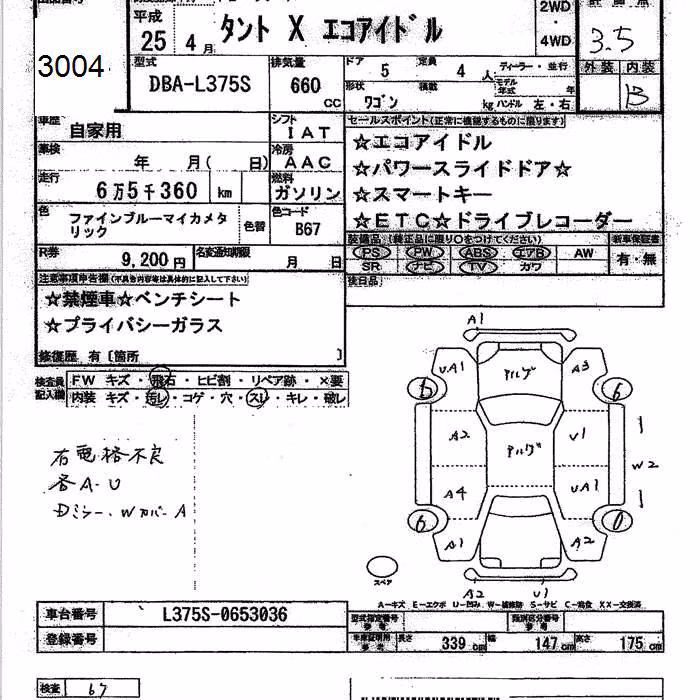 平成
25 4月
タント X エコアイドル
2WD
・
4WD
3.5
外装 内装
B
3004
型式
DBA-L375S
排気量
660
CC
ドア 5 定員 4 人
ティーラー・並行
形状 ワゴン 積載 kg
モデル年式 年
ハンドル 左・右
車歴
自家用
シフト
IAT
車検
年 月( 日)
冷房
AAC
走行
6万5千360 km
燃料
ガソリン
色
ファインブルーマイカメタリック
色替
色コード
B67
R券
9,200円
名変通知期限
月 日
セールスポイント(正常に機能するものに限ります)
☆エコアイドル
☆パワースライドドア☆
☆スマートキー
☆ETC☆ドライブレコーダー
装備品(純正品に限り○をつけてください)
新車保証書
PS PW ABS エアB AW
SR ナビ TV カワ
有・無
後日品
注意事項申告欄(不具合内容等は具体的に記入して下さい)
☆禁煙車☆ベンチシート
☆プライバシーガラス
修復歴 有〔箇所 〕
検査員
記入欄
FW キズ・飛石・ヒビ割・リペア跡・×要
内装 キズ・汚レ・コゲ・穴・スレ・キレ・破レ
右電格不良
各A-U
Dミラー・Wカバー A
A1
UA1
アルグ
A3
6
6
A2
アルグ
U1
W2
A4
UA1
6
6
A1
A2
スペア
A2 U1
A-キズ E-エクボ U-凹み W-補修跡 S-サビ C-腐食 XX-交換済
車台番号
L375S-0653036
登録番号
型式指定番号
参考
類別区分番号
参考
車庫証明用
参考
長さ 339 cm 幅 147 cm 高さ 175 cm
検査
67